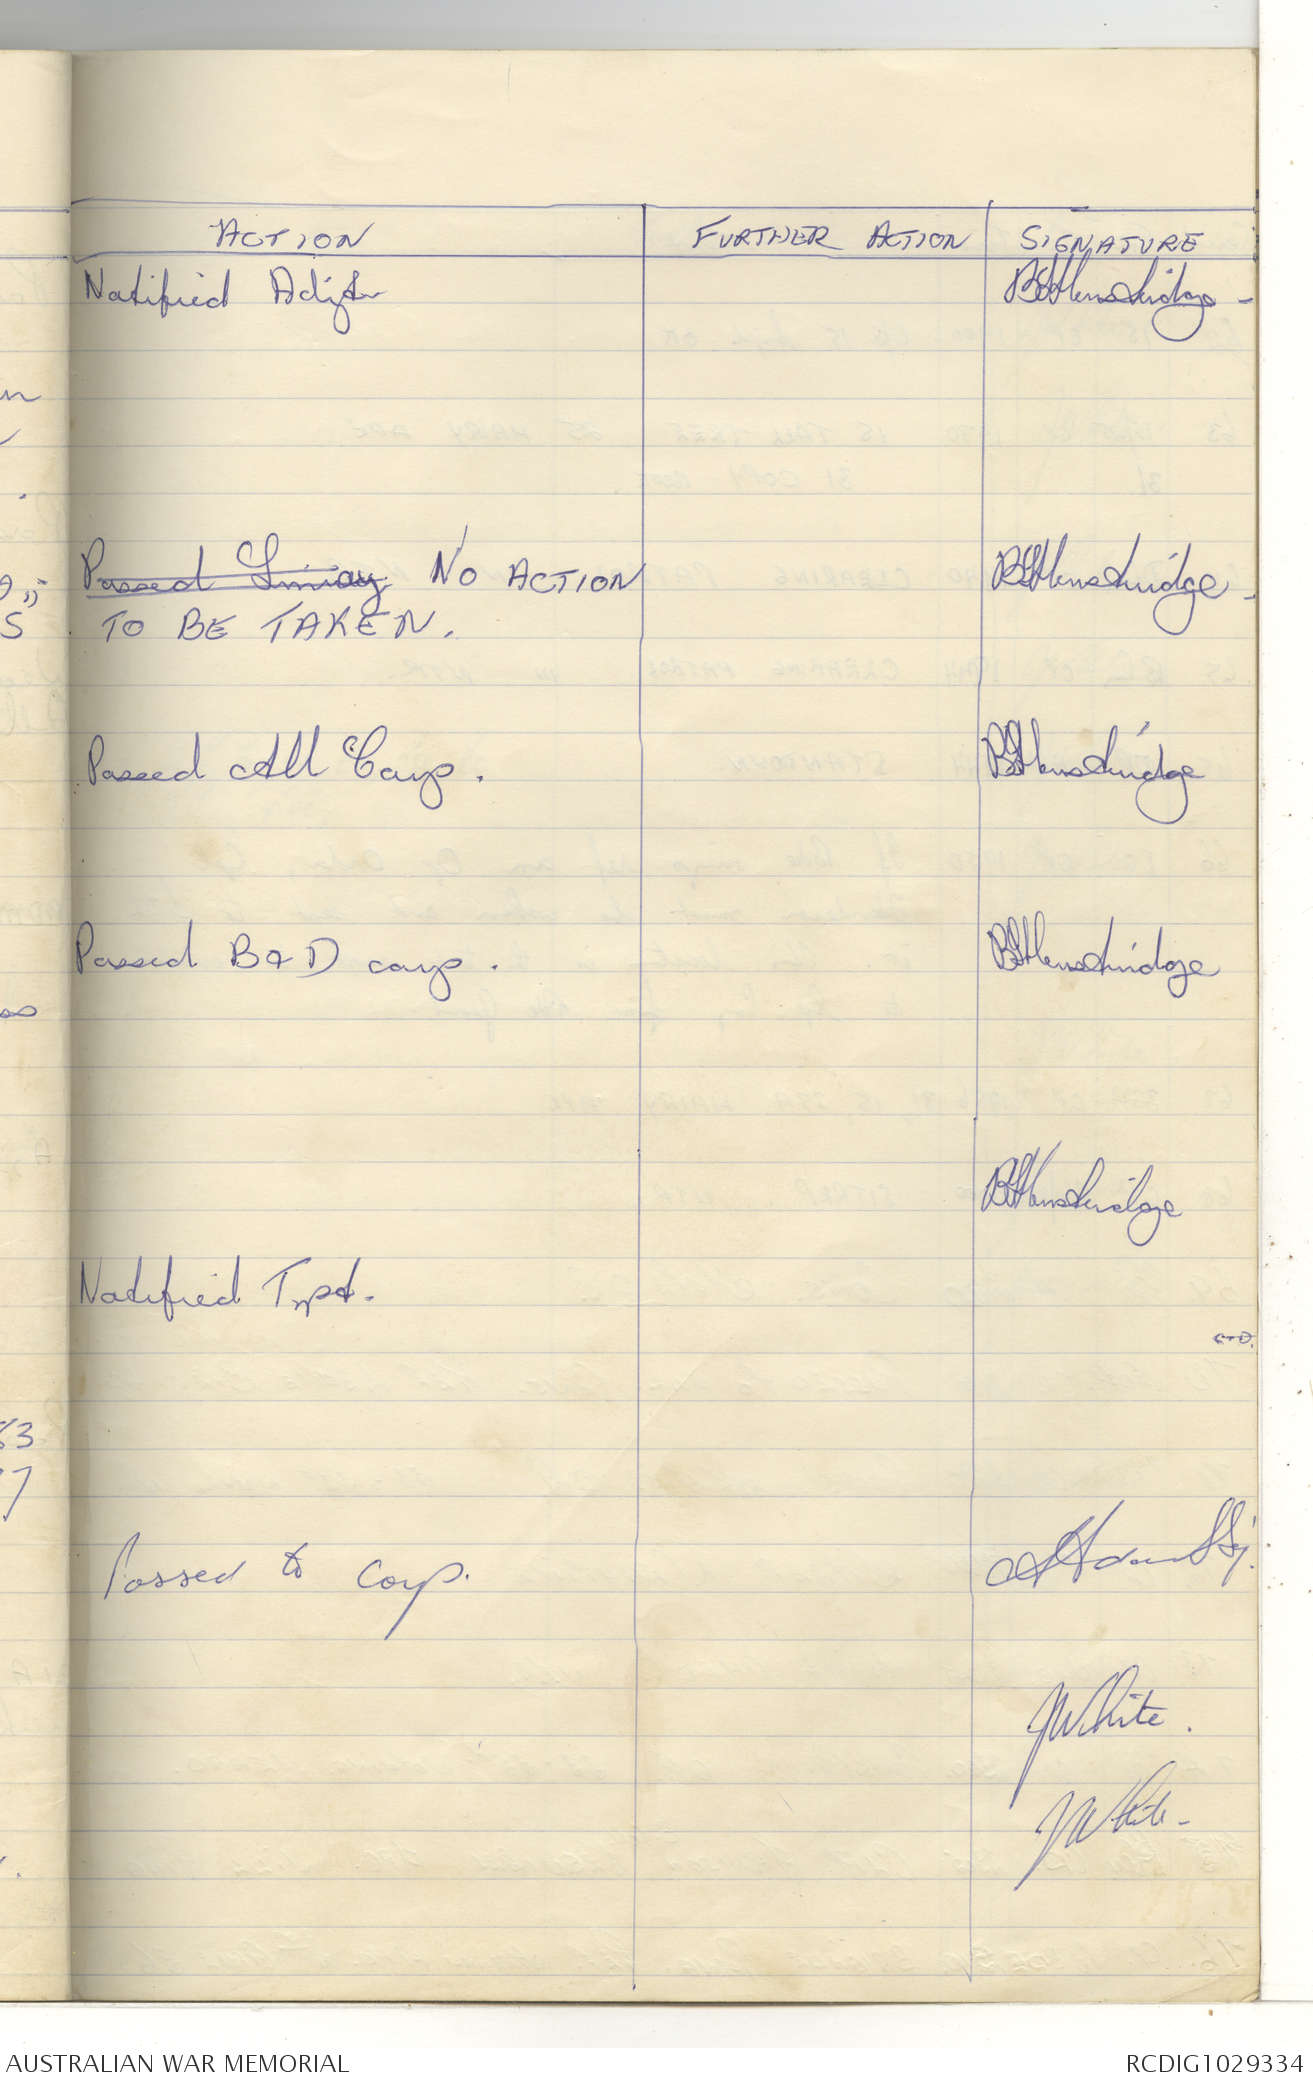 ACTION FURTHER ACTION SIGNATURE
Notified Adjt BSHenstridge -
Passed NO ACTION BSHenstridge -
TO BE TAKEN.
Passed All Coys. BSHenstridge
Passed B & D coys. BSHenstridge
BSHenstridge
Notified Tpt.
83
7
Passed to Coys.
JWhite.
JWhite -
AUSTRALIAN WAR MEMORIAL RCDIG1029334